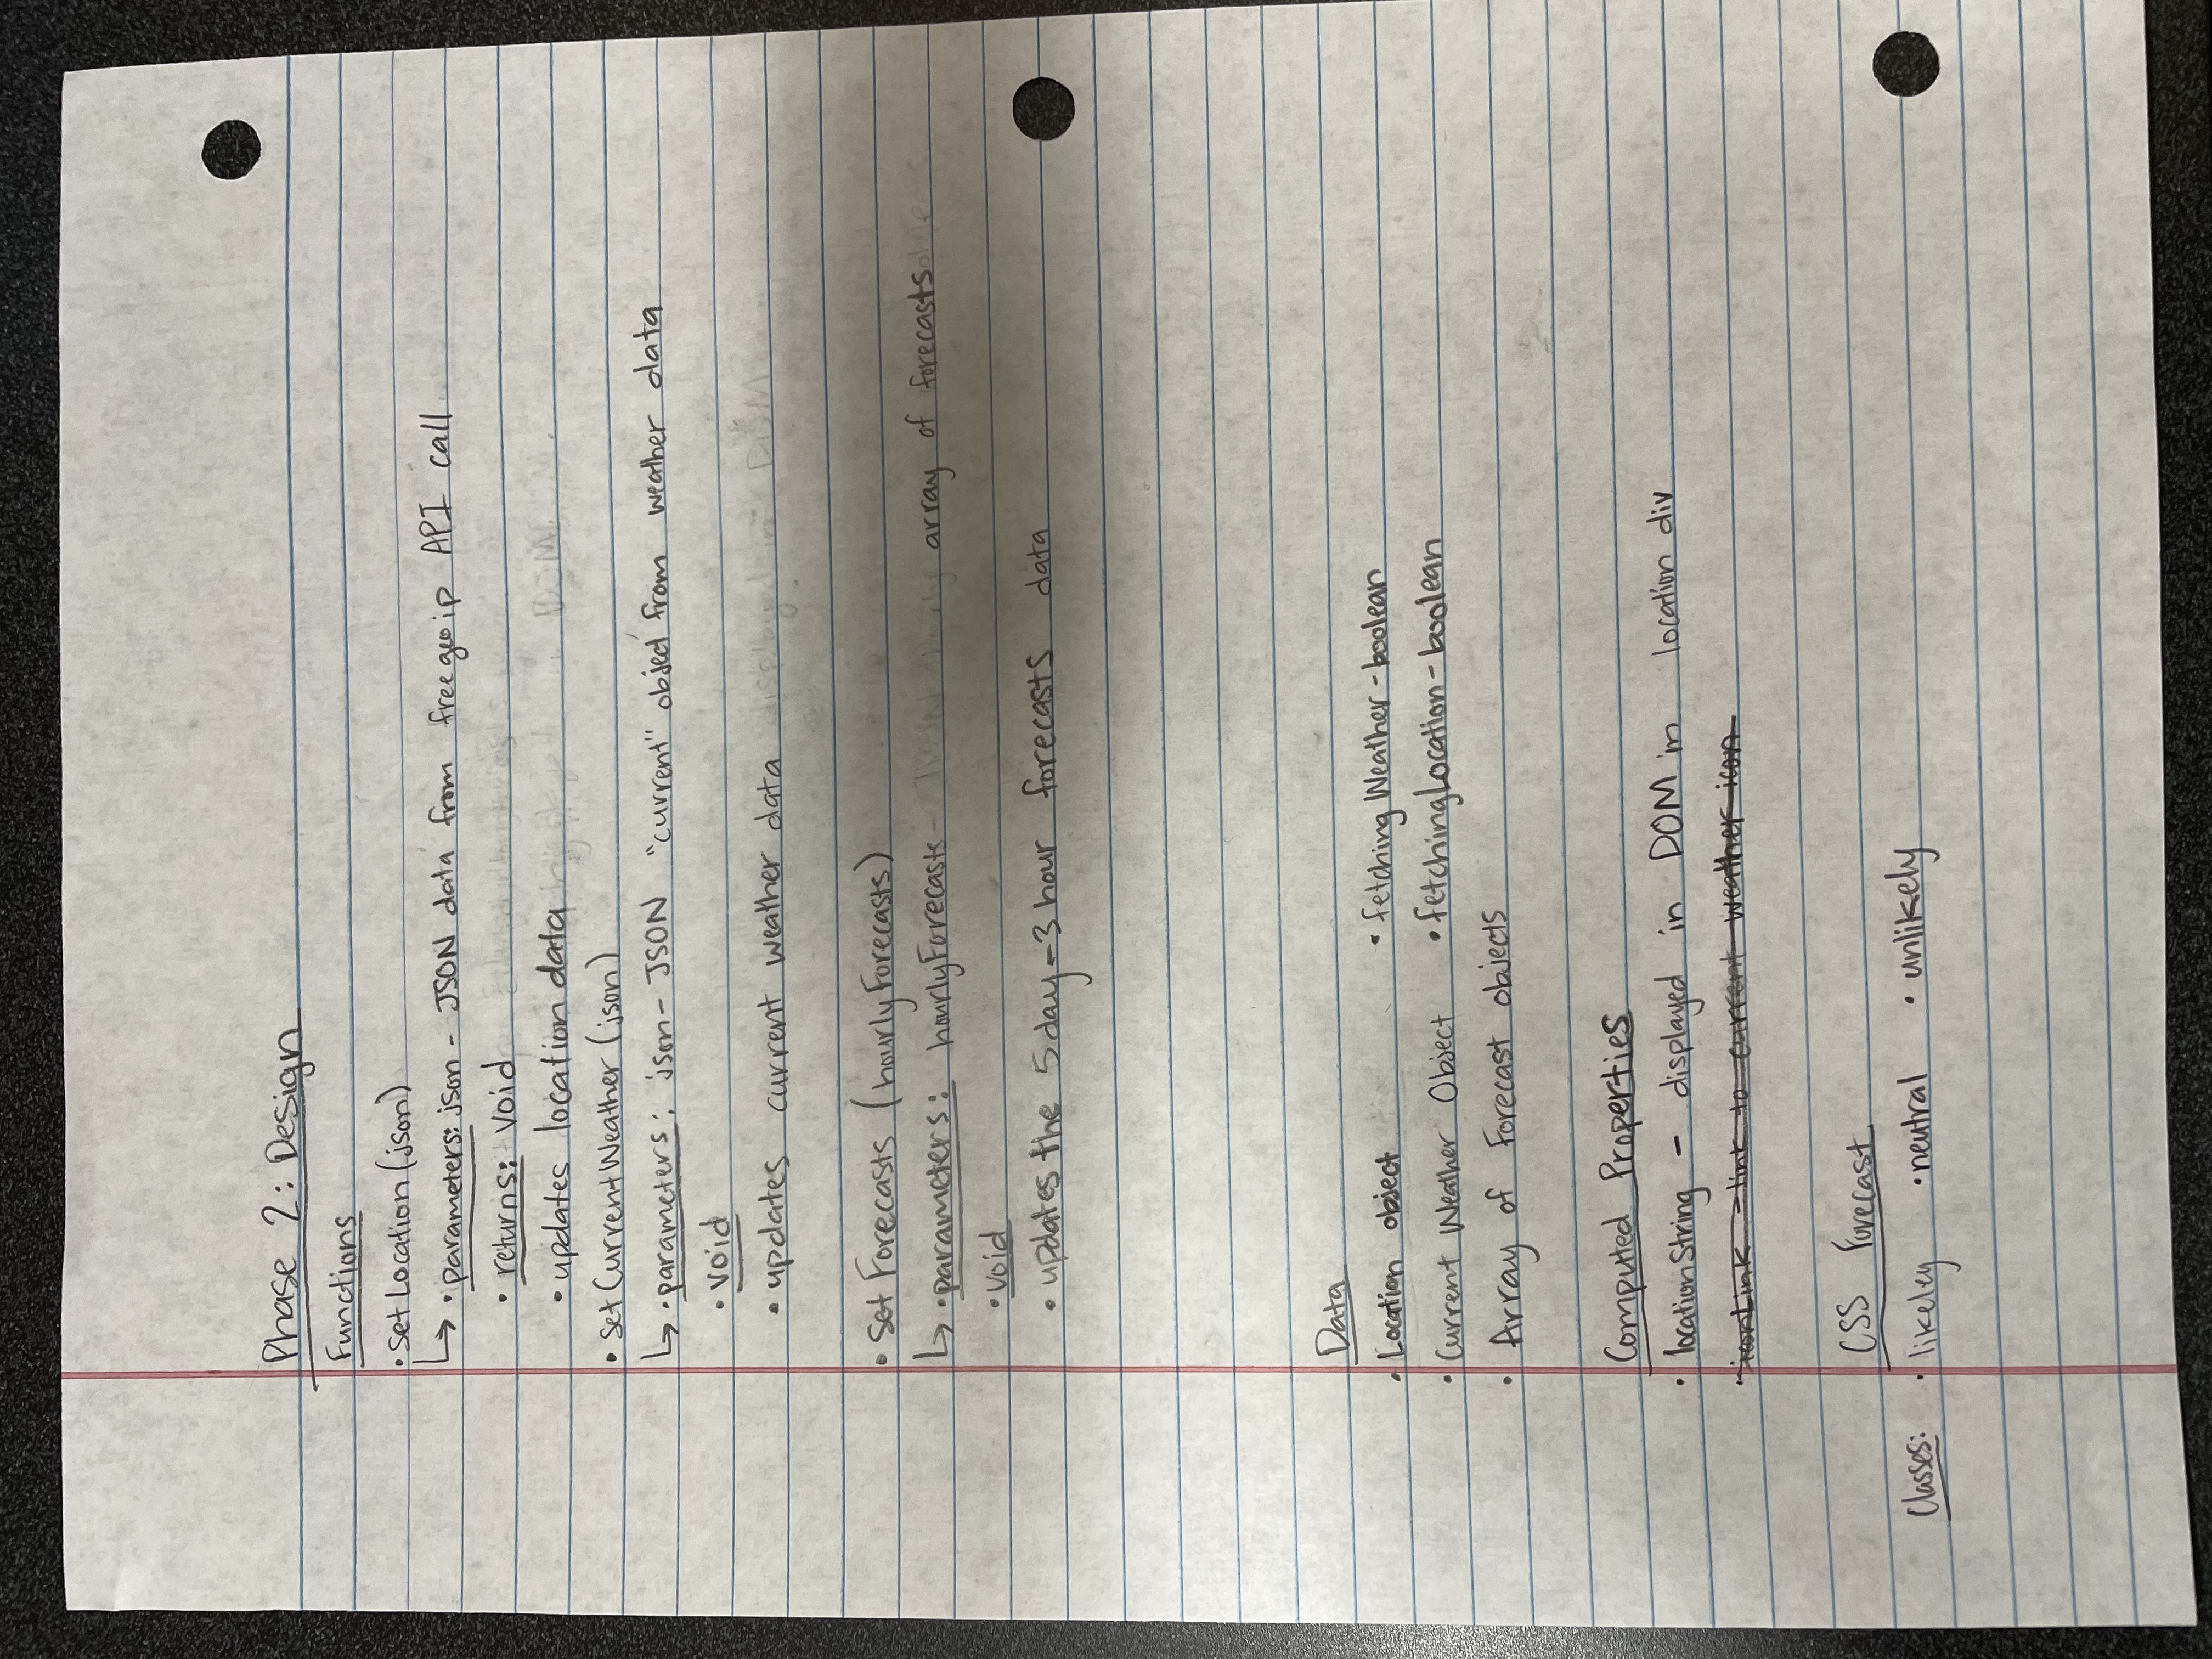 Phase 2: Design
Functions
• Set Location (json)
↳ • parameters: json - JSON data from freegeoip API call
• returns: void
• updates location data
• Set CurrentWeather (json)
↳ • parameters: json - JSON "current" object from weather data
• void
• updates current weather data displayed in DOM
• Set Forecasts (hourlyForecasts)
↳ • parameters: hourlyForecasts - array of forecasts
• void
• updates the 5 day - 3 hour forecasts data
Data
• Location object • fetchingWeather - boolean
• Current Weather Object • fetchingLocation - boolean
• Array of Forecast objects
Computed Properties
• locationString - displayed in DOM in location div
• iconLink - link to current weather icon
CSS Forecast
Classes: • likeley • neutral • unlikely